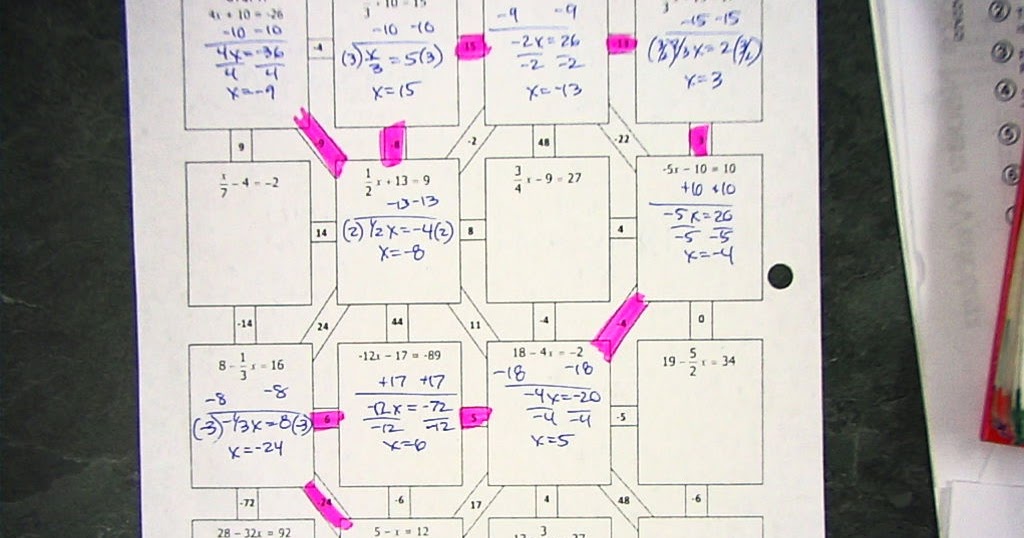 4x + 10 = -26
-10 -10
4x = -36
4 4
x = -9
-4
-10 -10
(3) x/3 = 5(3)
x = 15
15
-9 -9
-2x = 26
-2 -2
x = -13
-13
-15 -15
x = 3
9
-9
-8
-2
48
-22
3
x/7 - 4 = -2
14
1/2 x + 13 = 9
-13 -13
(2) 1/2 x = -4(2)
x = -8
8
3/4 x - 9 = 27
4
-5x - 10 = 10
+10 +10
-5x = 20
-5 -5
x = -4
-14
24
44
11
-4
-4
0
8 - 1/3 x = 16
-8 -8
(-3) -1/3 x = 8(-3)
x = -24
6
-12x - 17 = -89
+17 +17
-12x = -72
-12 -12
x = 6
5
18 - 4x = -2
-18 -18
-4x = -20
-4 -4
x = 5
-5
19 - 5/2 x = 34
-72
-24
-6
17
4
48
-6
28 - 32x = 92
5 - x = 12
②
③
④
⑤
⑥